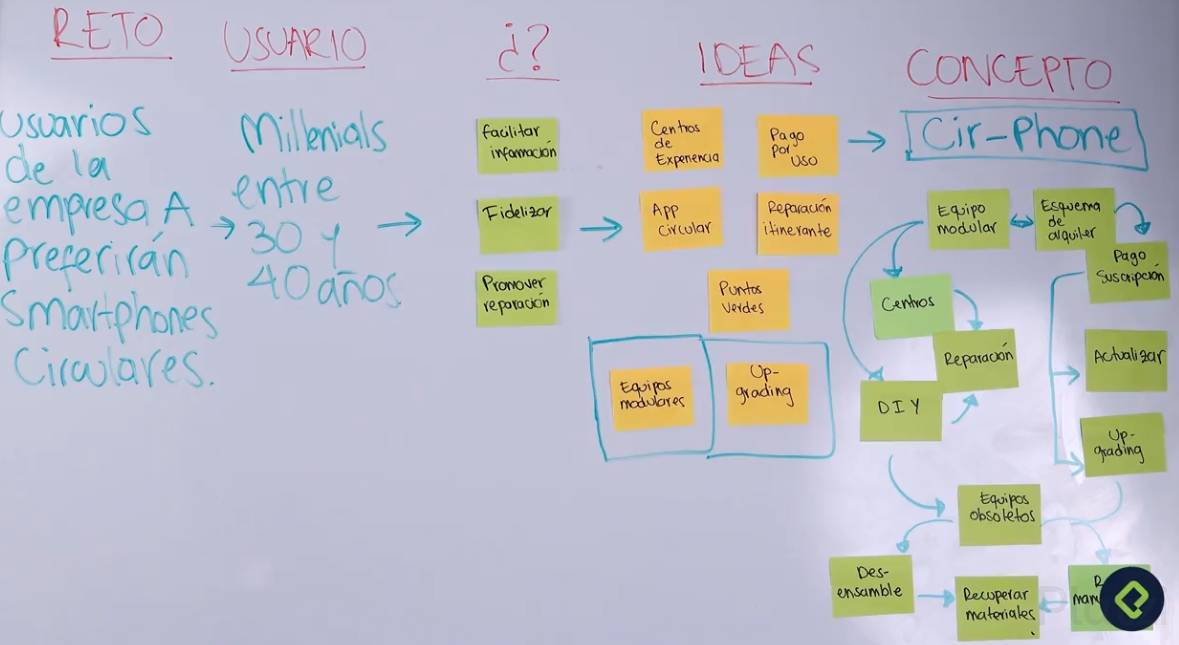 RETO
USUARIO
¿?
IDEAS
CONCEPTO
Usuarios
de la
empresa A
preferirán
Smartphones
Circulares.
Millenials
entre
30 y
40 años
facilitar
información
Fidelizar
Promover
reparación
Centros
de
Experiencia
Pago
por
uso
App
circular
Reparación
itinerante
Puntos
verdes
Equipos
modulares
Up-
grading
Cir-Phone
Equipo
modular
Esquema
de
alquiler
Pago
Suscripción
Centros
Reparación
Actualizar
DIY
Up-
grading
Equipos
obsoletos
Des-
ensamble
Recuperar
materiales